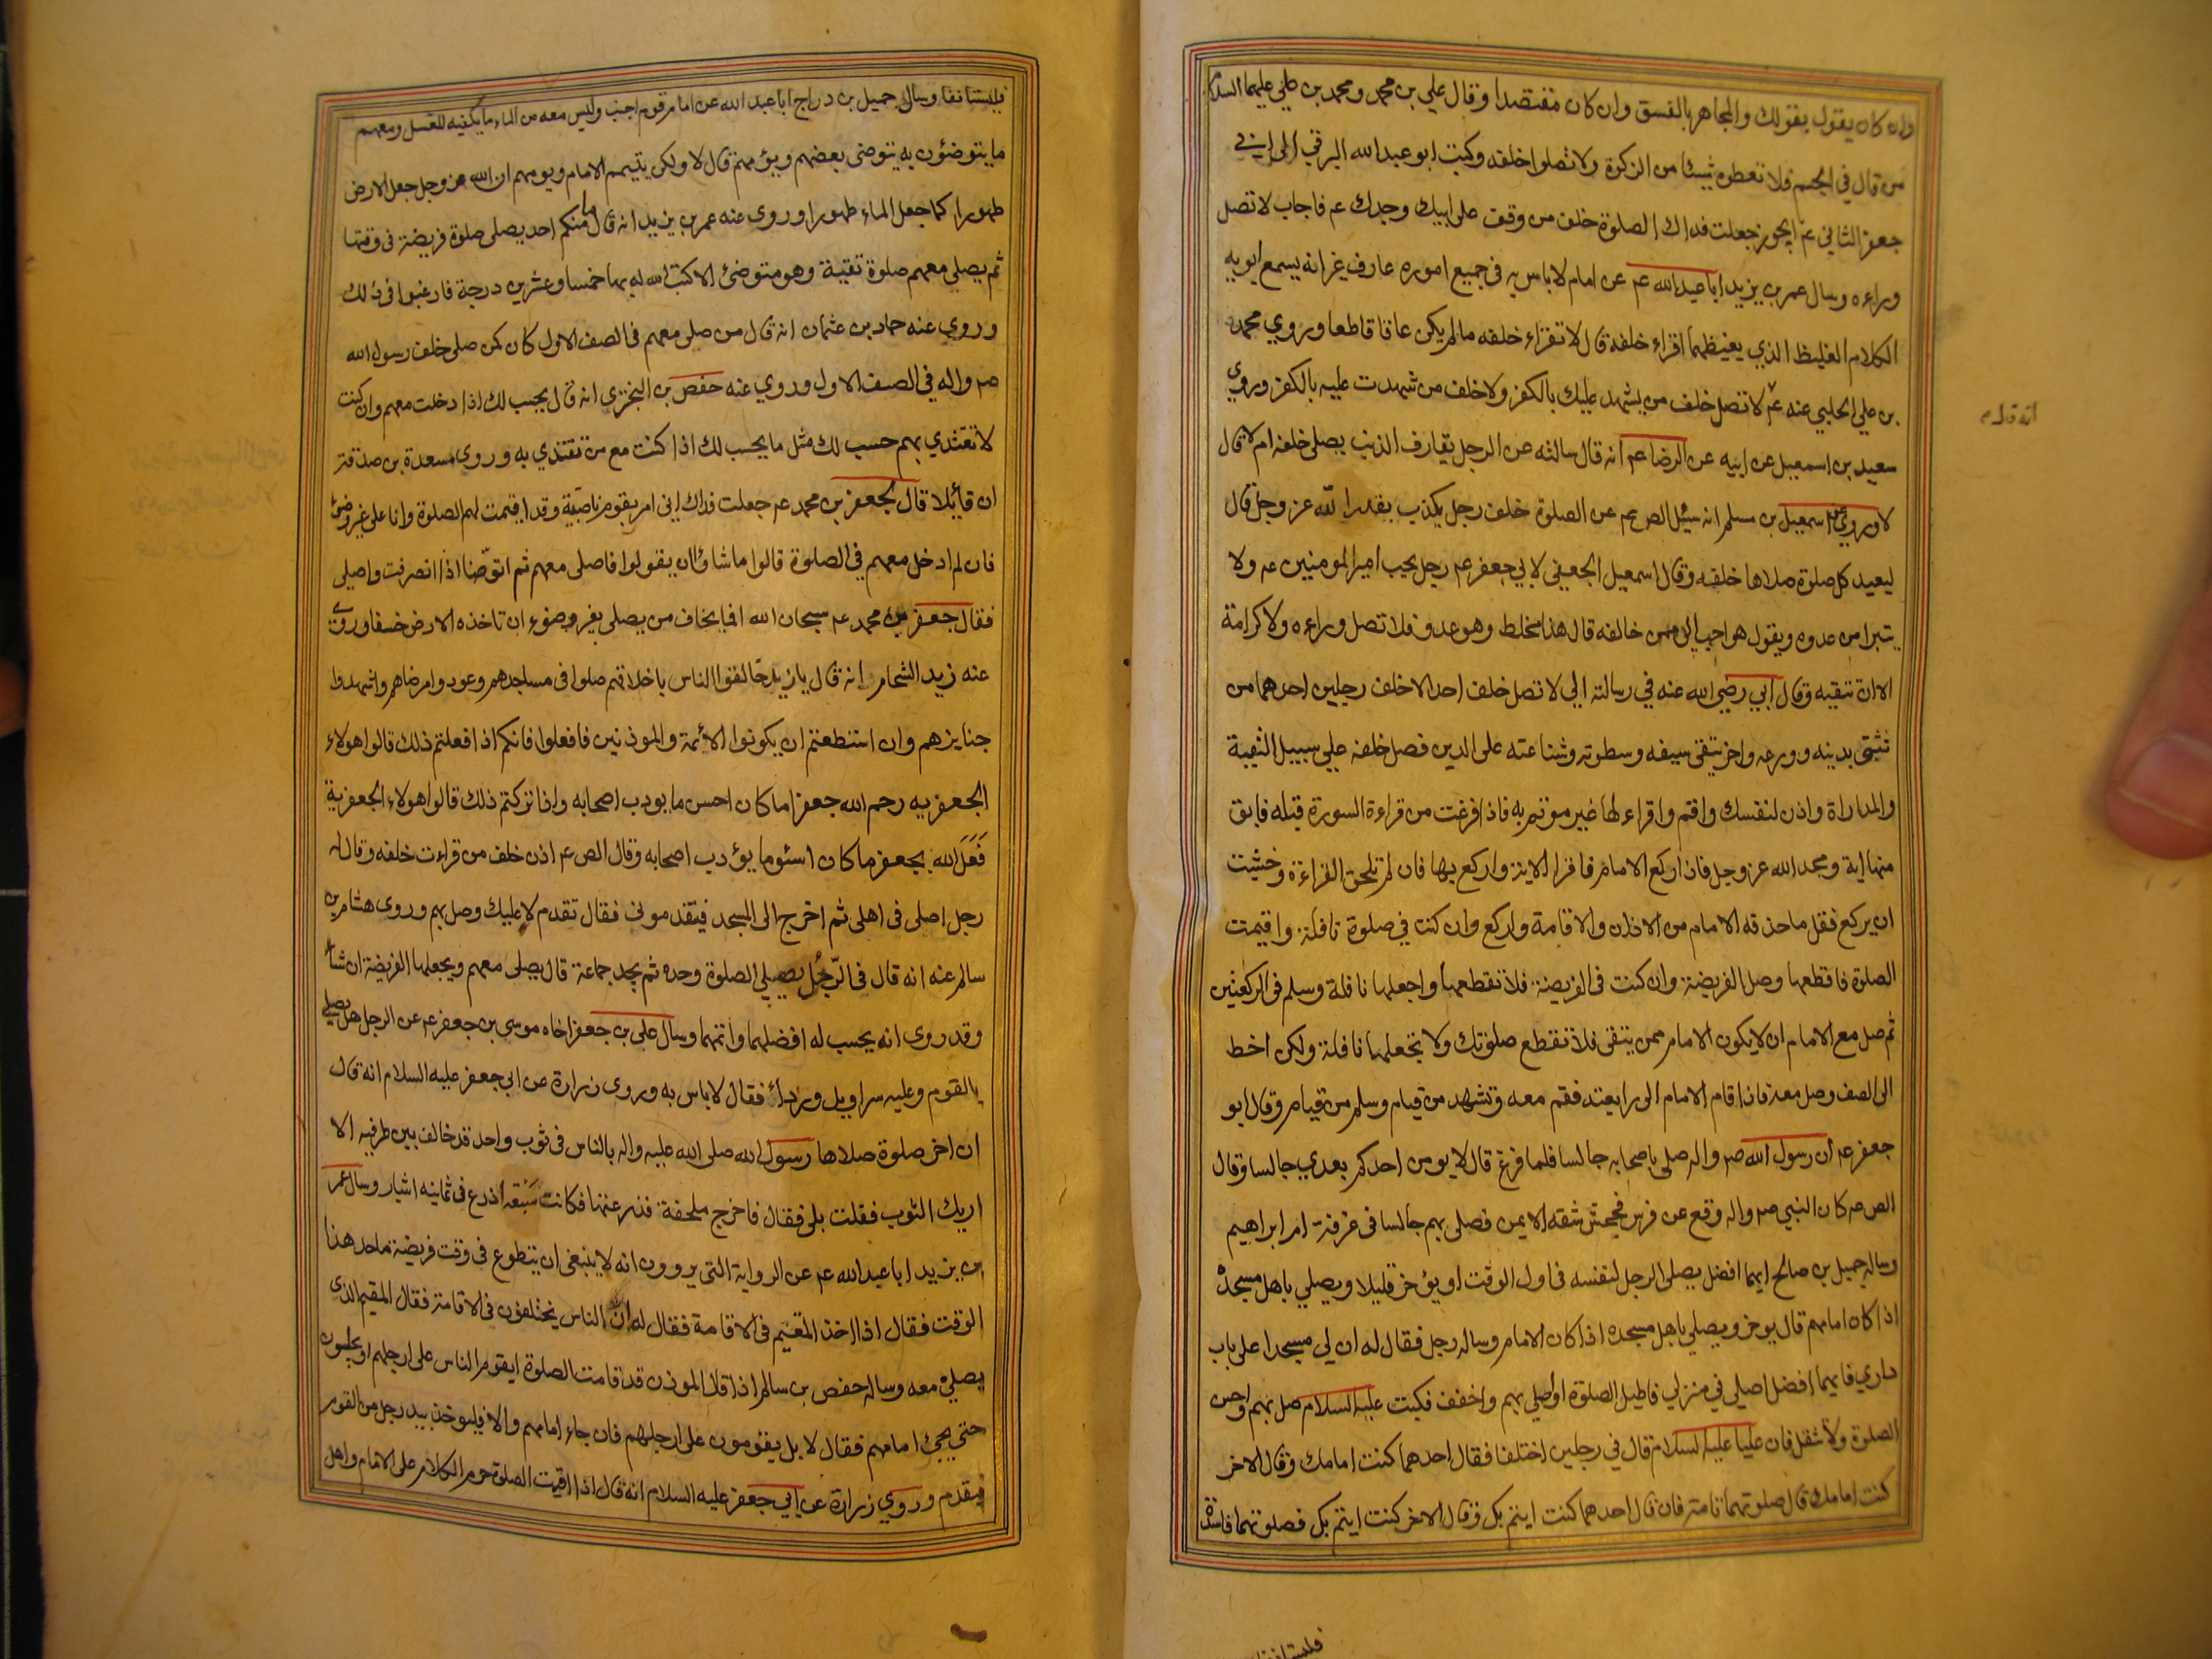 وان كان يقول بقولك والمجاهر بالفسق وان كان مقتصدا وقال علي بن محمد ومحمد بن علي عليهما السلام
من قال في الجسم فلا تعطوه شيئا من الزكوة ولا تصلوا خلفه وكتب ابو عبد الله البرقي الى ابي
جعفر الثاني عم ايجوز جعلت فداك الصلوة خلف من وقف على ابيك وجدك عم فاجاب لا تصل
وراءه وسال عمر بن يزيد ابا عبد الله عم عن امام لا باس به في جميع اموره عارف غير انه يسمع ابويه
الكلام الغليظ الذي يغيظهما اقراء خلفه قال لا تقراء خلفه ما لم يكن عاقا قاطعا وروي محمد
بن علي الحلبي عنه عم لا تصل خلف من يشهد عليك بالكفر ولا خلف من شهدت عليه بالكفر وروي
سعيد بن اسمعيل عن ابيه عن الرضا عم انه قال سالته عن الرجل يقارف الذنب يصلى خلفه ام لا قال
لا وروي اسمعيل بن مسلم انه سئل الص عم عن الصلوة خلف رجل يكذب بقدر الله عز وجل قال
ليعيد كل صلوة صلاها خلفه وقال اسمعيل الجعفي لابي جعفر عم رجل يحب امير المومنين عم ولا
يتبرا من عدوه ويقول هو احب الي ممن خالفه قال هذا مخلط وهو عدو فلا تصل وراءه ولا كرامة
الا ان تتقيه وقال ابي رضي الله عنه في رسالته الي لا تصل خلف احد الا خلف رجلين احدهما من
تثق بدينه وورعه واخر تتقى سيفه وسطوته وشناعته على الدين فصل خلفه علي سبيل التقية
والمداراة واذن لنفسك واقم واقراء لها غير موتم به فاذا فرغت من قراءة السورة قبله فابق
منها اية ومجد الله عز وجل فاذا ركع الامام فاقرا الاية واركع بها فان لم تلحق القراءة وخشيت
ان يركع فقل ما حذفه الامام من الاذان والاقامة واركع وان كنت في صلوة نافلة واقيمت
الصلوة فاقطعها وصل الفريضة وان كنت في الفريضة فلا تقطعها واجعلها نافلة وسلم في الركعتين
ثم صل مع الامام ان لا يكون الامام ممن يتقى فلا تقطع صلوتك ولا تجعلها نافلة ولكن اخط
الى الصف وصل معه فاذا قام الامام الى رابعته فقم معه وتشهد من قيام وسلم من قيام وقال ابو
جعفر عم ان رسول الله ص واله صلى باصحابه جالسا فلما فرغ قال لا يومن احدكم بعدي جالسا وقال
الص عم كان النبي ص واله وقع عن فرس فجحش شقه الايمن فصلى بهم جالسا في غرفة ام ابراهيم
وساله جميل بن صالح ايهما افضل يصلى الرجل لنفسه في اول الوقت او يؤخر قليلا ويصلي باهل مسجده
اذا كان امامهم قال يوخر ويصلي باهل مسجده اذا كان الامام وساله رجل فقال له ان لي مسجدا على باب
داري فايهما افضل اصلي في منزلي فاطيل الصلوة او اصلي بهم واخفف فكتب عليه السلام صل بهم واحسن
الصلوة ولا تثقل فان عليا عليه السلام قال في رجلين اختلفا فقال احدهما كنت امامك وقال الاخر
كنت امامك قال صلوتهما تامة فان قال احدهما كنت ايتم بك وقال الاخر كنت ايتم بك فصلوتهما فاسدة
فليستانفا وسال جميل بن دراج ابا عبد الله عن امام قوم اجنب وليس معه من الماء ما يكفيه للغسل ومعهم
ما يتوضئون به يتوضى بعضهم ويؤمهم قال لا ولكن يتيمم الامام ويومهم ان الله عز وجل جعل الارض
طهورا كما جعل الماء طهورا وروى عنه عمر بن يزيد انه قال ما منكم احد يصلى صلوة فريضة في وقتها
ثم يصلي معهم صلوة تقية وهو متوضئ الا كتب الله له بها خمسا وعشرين درجة فارغبوا في ذلك
وروي عنه حماد بن عثمان انه قال من صلى معهم في الصف الاول كان كمن صلى خلف رسول الله
ص واله في الصف الاول وروي عنه حفص بن البختري انه قال يحسب لك اذا دخلت معهم وان كنت
لا تقتدي بهم حسب لك مثل ما يحسب لك اذا كنت مع من تقتدي به وروى مسعدة بن صدقة
ان قائلا قال لجعفر بن محمد عم جعلت فداك اني امر بقوم ناصبية وقد اقيمت لهم الصلوة وانا على غير وضوء
فان لم ادخل معهم في الصلوة قالوا ما شاؤا ان يقولوا فاصلى معهم ثم اتوضا اذا انصرفت واصلي
فقال جعفر بن محمد عم سبحان الله افما يخاف من يصلى بغير وضوء ان تاخذه الارض خسفا وروى
عنه زيد الشحام انه قال يا زيد خالقوا الناس باخلاقهم صلوا في مساجدهم وعودوا مرضاهم واشهدوا
جنايزهم وان استطعتم ان يكونوا الائمة والموذنين فافعلوا فانكم اذا فعلتم ذلك قالوا هولاء
الجعفريه رحم الله جعفرا ما كان احسن ما يودب اصحابه واذا تركتم ذلك قالوا هولاء الجعفرية
فعل الله بجعفر ما كان اسئو ما يؤدب اصحابه وقال الص عم اذن خلف من قراءت خلفه وقال له
رجل اصلى في اهلى ثم اخرج الى المسجد فيقدموني فقال تقدم لا عليك وصل بهم وروى هشام بن
سالم عنه انه قال في الرجل يصلي الصلوة وحده ثم يجد جماعة قال يصلى معهم ويجعلها الفريضة ان شاء
وقد روى انه يحسب له افضلهما واتمهما وسال على بن جعفر اخاه موسى بن جعفر عم عن الرجل هل يصلي
بالقوم وعليه سراويل ورداء فقال لا باس به وروى زرارة عن ابي جعفر عليه السلام انه قال
ان اخر صلوة صلاها رسول الله صلى الله عليه واله بالناس في ثوب واحد قد خالف بين طرفيه الا
اريك الثوب فقلت بلى فقال فاخرج ملحفة فذرعتها فكانت سبعة اذرع في ثمانيه اشبار وسال عمر
بن يزيد ابا عبد الله عم عن الرواية التي يروون انه لا ينبغي ان يتطوع في وقت فريضة ما حد هذا
الوقت فقال اذا اخذ المقيم في الاقامة فقال له ان الناس يختلفون في الاقامة فقال المقيم الذي
يصلي معه وساله حفص بن سالم اذا قال الموذن قد قامت الصلوة ايقوم الناس على ارجلهم او يجلسون
حتى يجئ امامهم فقال لا بل يقومون على ارجلهم فان جاء امامهم والا فليوخذ بيد رجل من القوم
فيقدم وروي زرارة عن ابي جعفر عليه السلام انه قال اذا اقيمت الصلوة حرم الكلام على الامام واهل